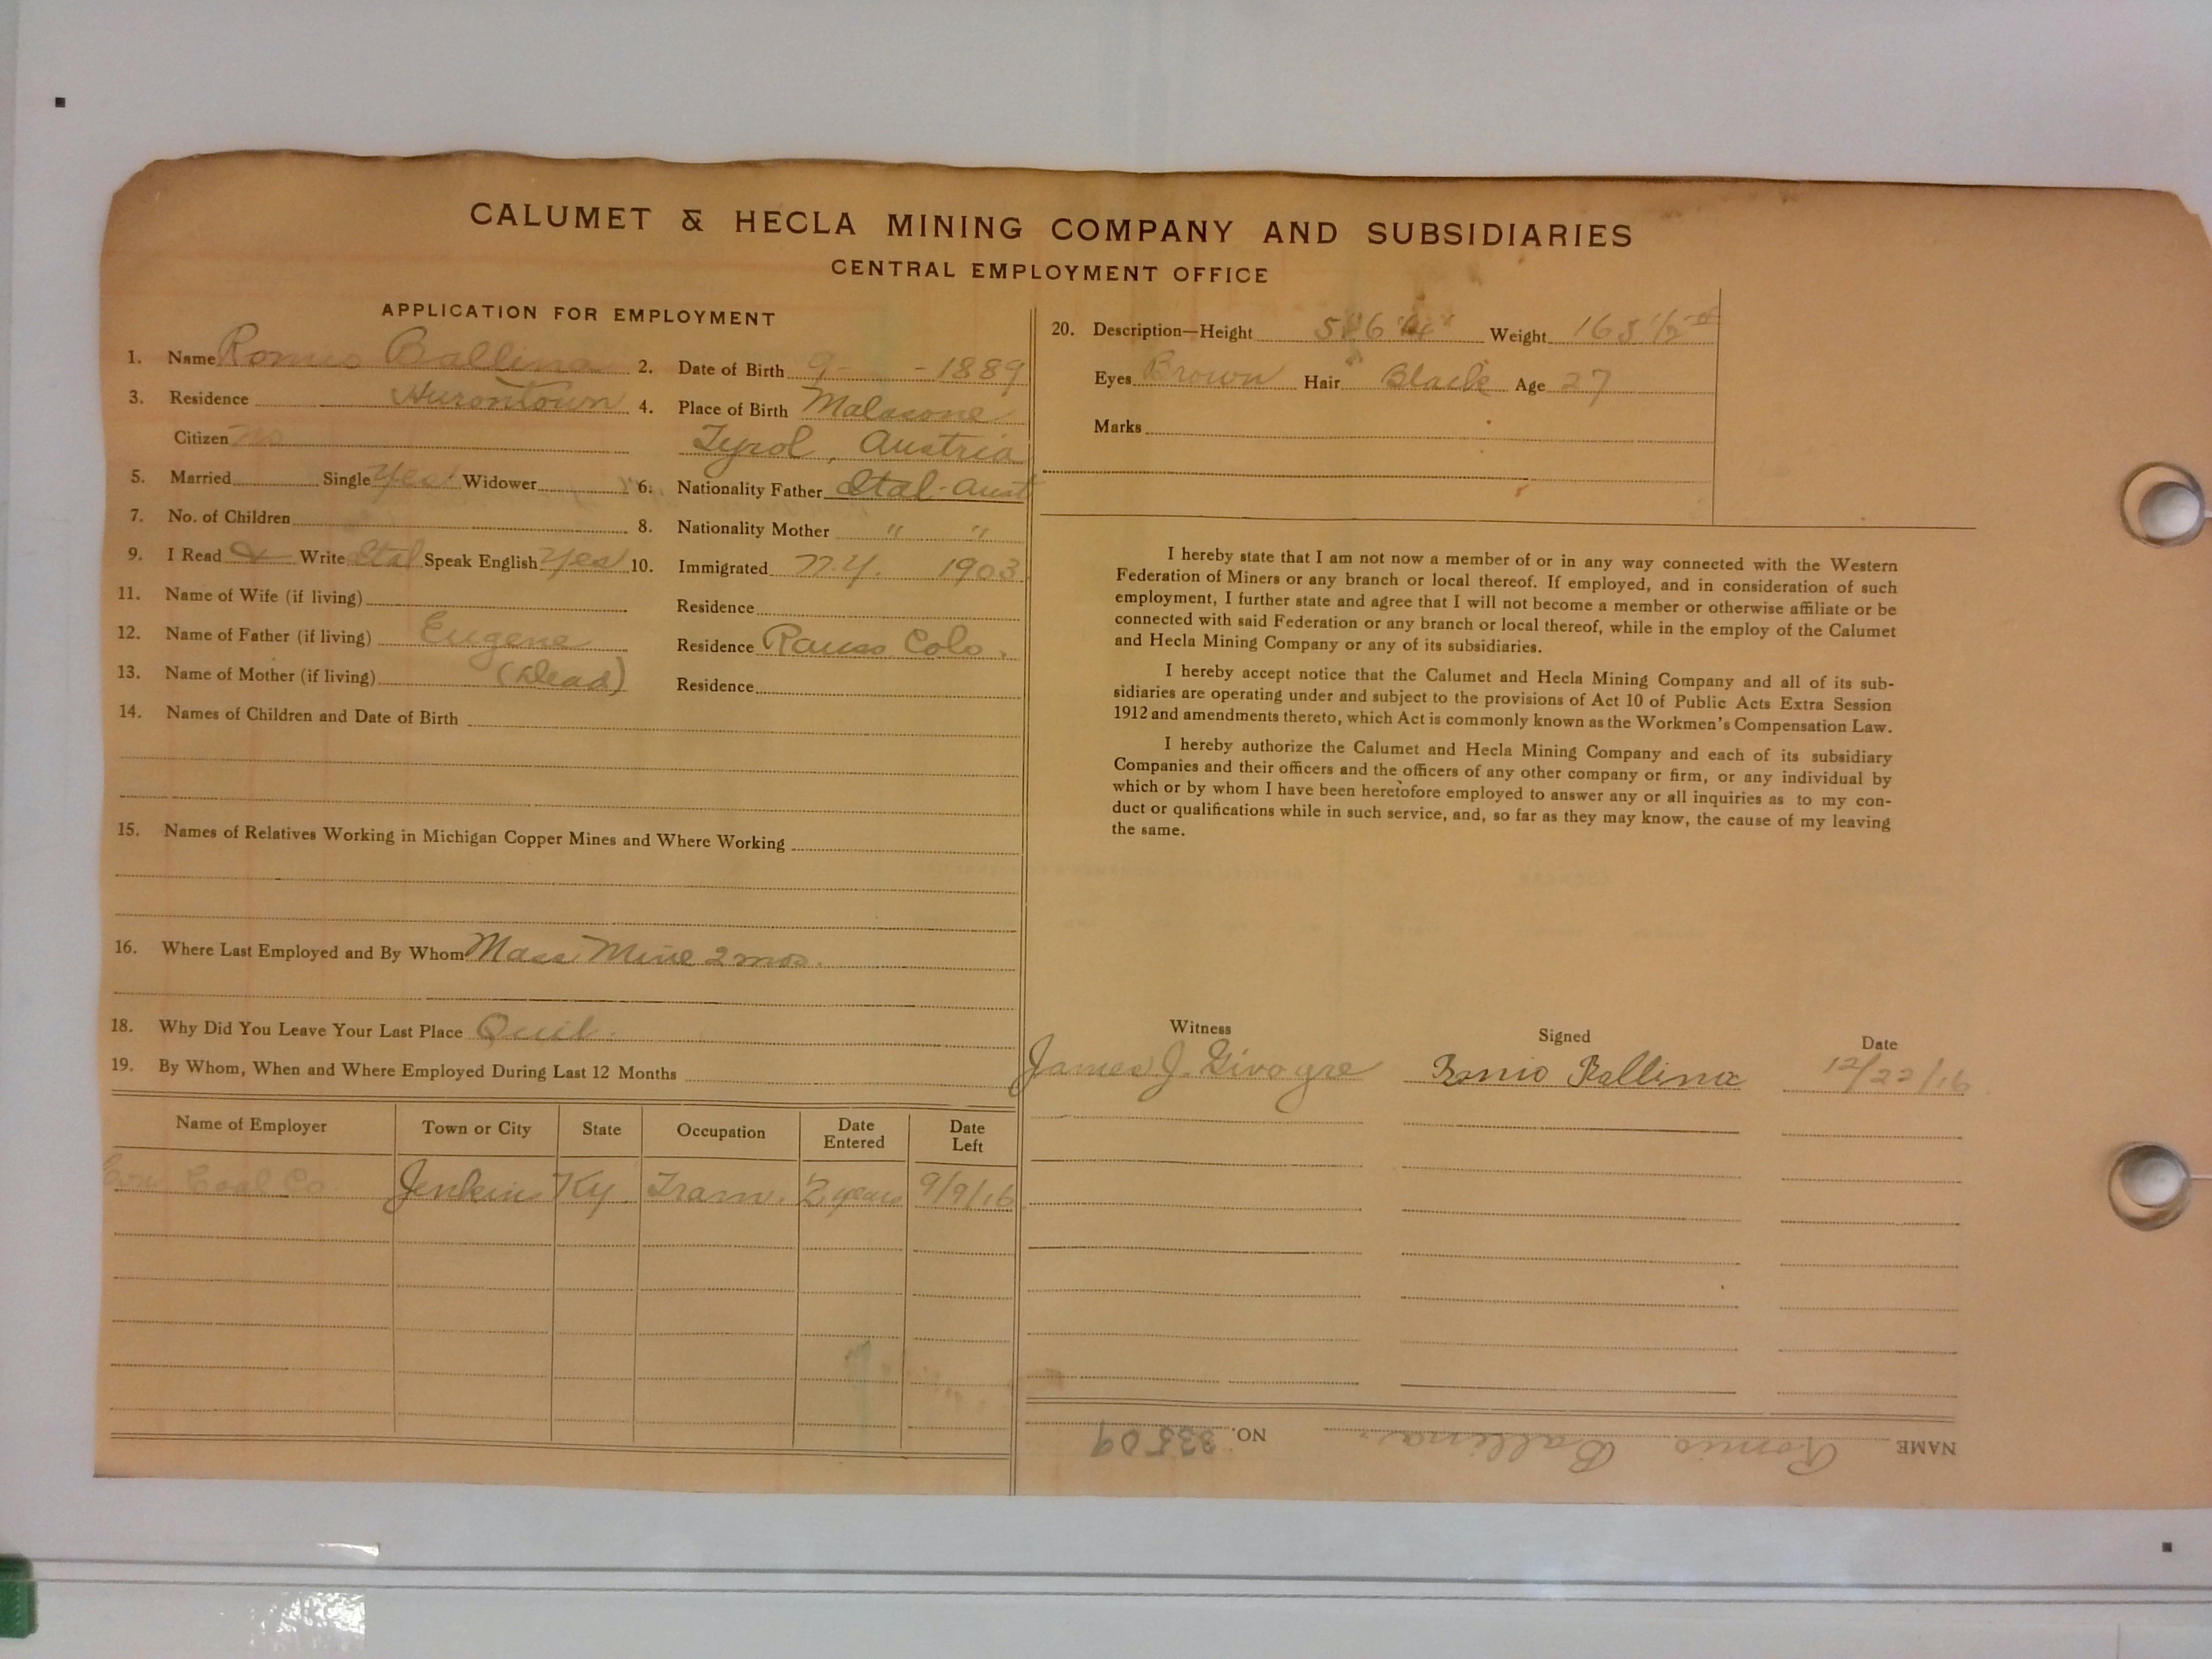 CALUMET & HECLA MINING COMPANY AND SUBSIDIARIES
CENTRAL EMPLOYMENT OFFICE
APPLICATION FOR EMPLOYMENT
1. Name Romio Ballina 2. Date of Birth 9 - - 1889
3. Residence Hurontown 4. Place of Birth Malasone
Citizen No Tyrol, Austria
5. Married Single Yes Widower 6. Nationality Father Ital-Aust
7. No. of Children 8. Nationality Mother " "
9. I Read & Write Ital Speak English Yes 10. Immigrated N.Y. 1903
11. Name of Wife (if living) Residence
12. Name of Father (if living) Eugene Residence Colo.
13. Name of Mother (if living) (Dead) Residence
14. Names of Children and Date of Birth
15. Names of Relatives Working in Michigan Copper Mines and Where Working
16. Where Last Employed and By Whom Mass Mine 2 mos.
18. Why Did You Leave Your Last Place Quit.
19. By Whom, When and Where Employed During Last 12 Months
Name of Employer Town or City State Occupation Date Entered Date Left
Coal Co. Jenkins Ky. Tram. 2 years 9/9/16
20. Description—Height 5' 6 Weight 165 1/2
Eyes Brown Hair Black Age 27
Marks
I hereby state that I am not now a member of or in any way connected with the Western
Federation of Miners or any branch or local thereof. If employed, and in consideration of such
employment, I further state and agree that I will not become a member or otherwise affiliate or be
connected with said Federation or any branch or local thereof, while in the employ of the Calumet
and Hecla Mining Company or any of its subsidiaries.
I hereby accept notice that the Calumet and Hecla Mining Company and all of its sub-
sidiaries are operating under and subject to the provisions of Act 10 of Public Acts Extra Session
1912 and amendments thereto, which Act is commonly known as the Workmen's Compensation Law.
I hereby authorize the Calumet and Hecla Mining Company and each of its subsidiary
Companies and their officers and the officers of any other company or firm, or any individual by
which or by whom I have been heretofore employed to answer any or all inquiries as to my con-
duct or qualifications while in such service, and, so far as they may know, the cause of my leaving
the same.
Witness Signed Date
James J. Romio Ballina 12/22/16
NAME Romio Ballina. NO. 33509